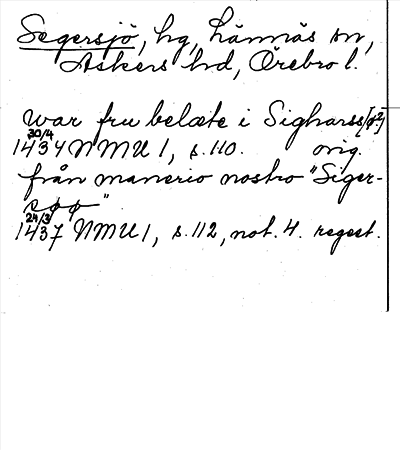 Segersjö, hg, Lännäs sn,
Askers hd, Örebro l.
war fru belæte i Sigharss[ø?]
30/4
1434 NMU 1, s. 110. orig.
från manerio nostro "Siger-
søø"
24/3
1437 NMU 1, s. 112, not. 4. regest.